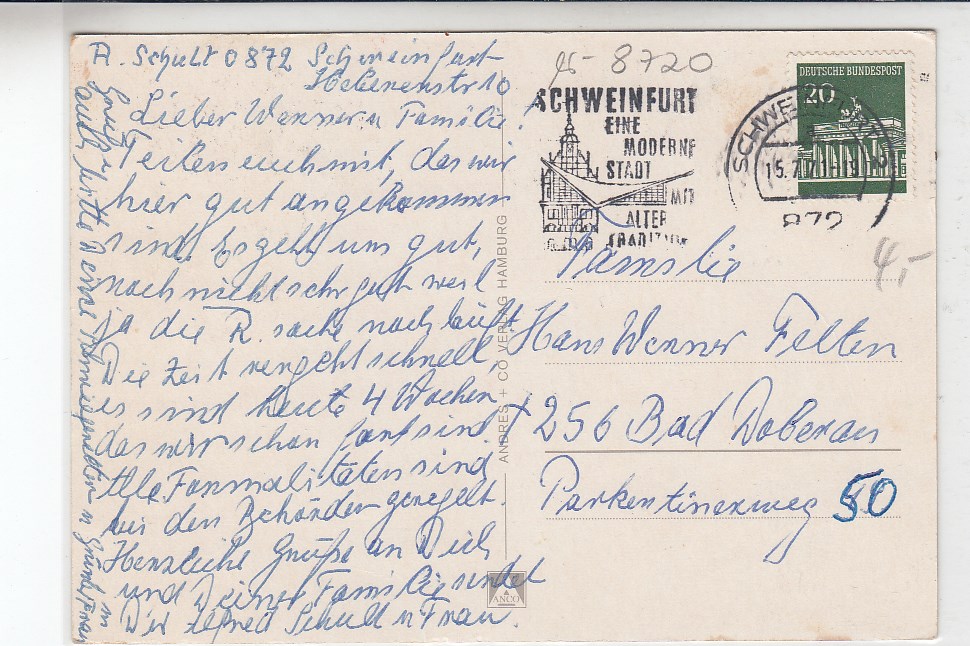 A. Schult D 872 Schweinfurt
Helenenstr 10
Lieber Werner u Familie!
Teilen euch mit, das wir
hier gut angekommen
sind Es geht uns gut,
noch nicht sehr gut weil
ja die R. sache noch läuft
Die Zeit vergeht schnell,
es sind heute 4 Wochen
das wir schon fort sind.
Alle Formalitäten sind
bei den Behörden geregelt.
Herzliche Grüße an Dich
und Deiner Familie sendet
Dir Alfred Schult u Frau.
auch bitte Deine Schwiegereltern u
95-8720
SCHWEINFURT
EINE
MODERNE
STADT
MIT
ALTER
TRADITION
DEUTSCHE BUNDESPOST
20
SCHWEINFURT
15.7.71-19
872
4,-
Familie
Hans Werner Felten
X 256 Bad Doberan
Parkentinerweg 50
ANDRES + CO VERLAG HAMBURG
ANCO